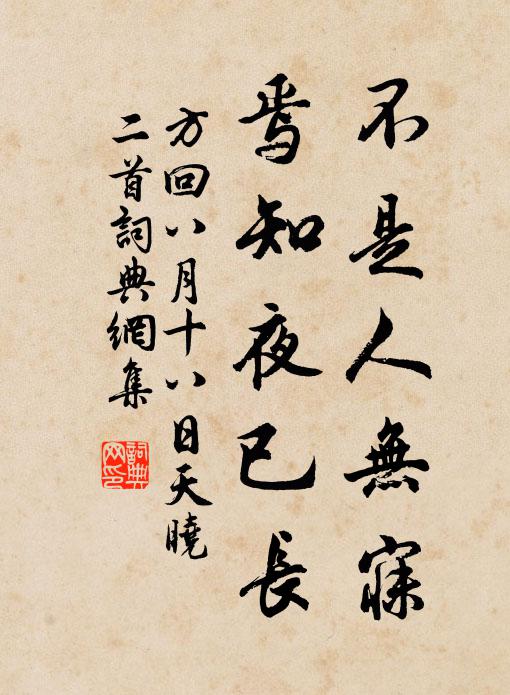 不是人無寐
焉知夜已長
方回八月十八日天曉
二首詞典網集
詞典
网印